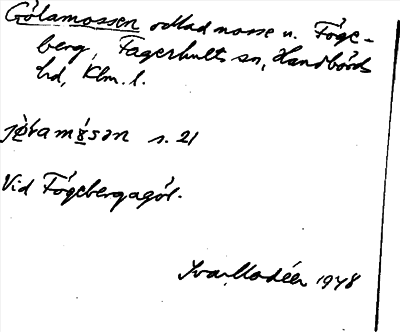 Gölamossen odlad mosse u. Fåge-
berg, Fagerhults sn, Handbörds
hd, Klm. l.
s. 21
Vid Fågebergagöl.
Ivar Modéer 1948